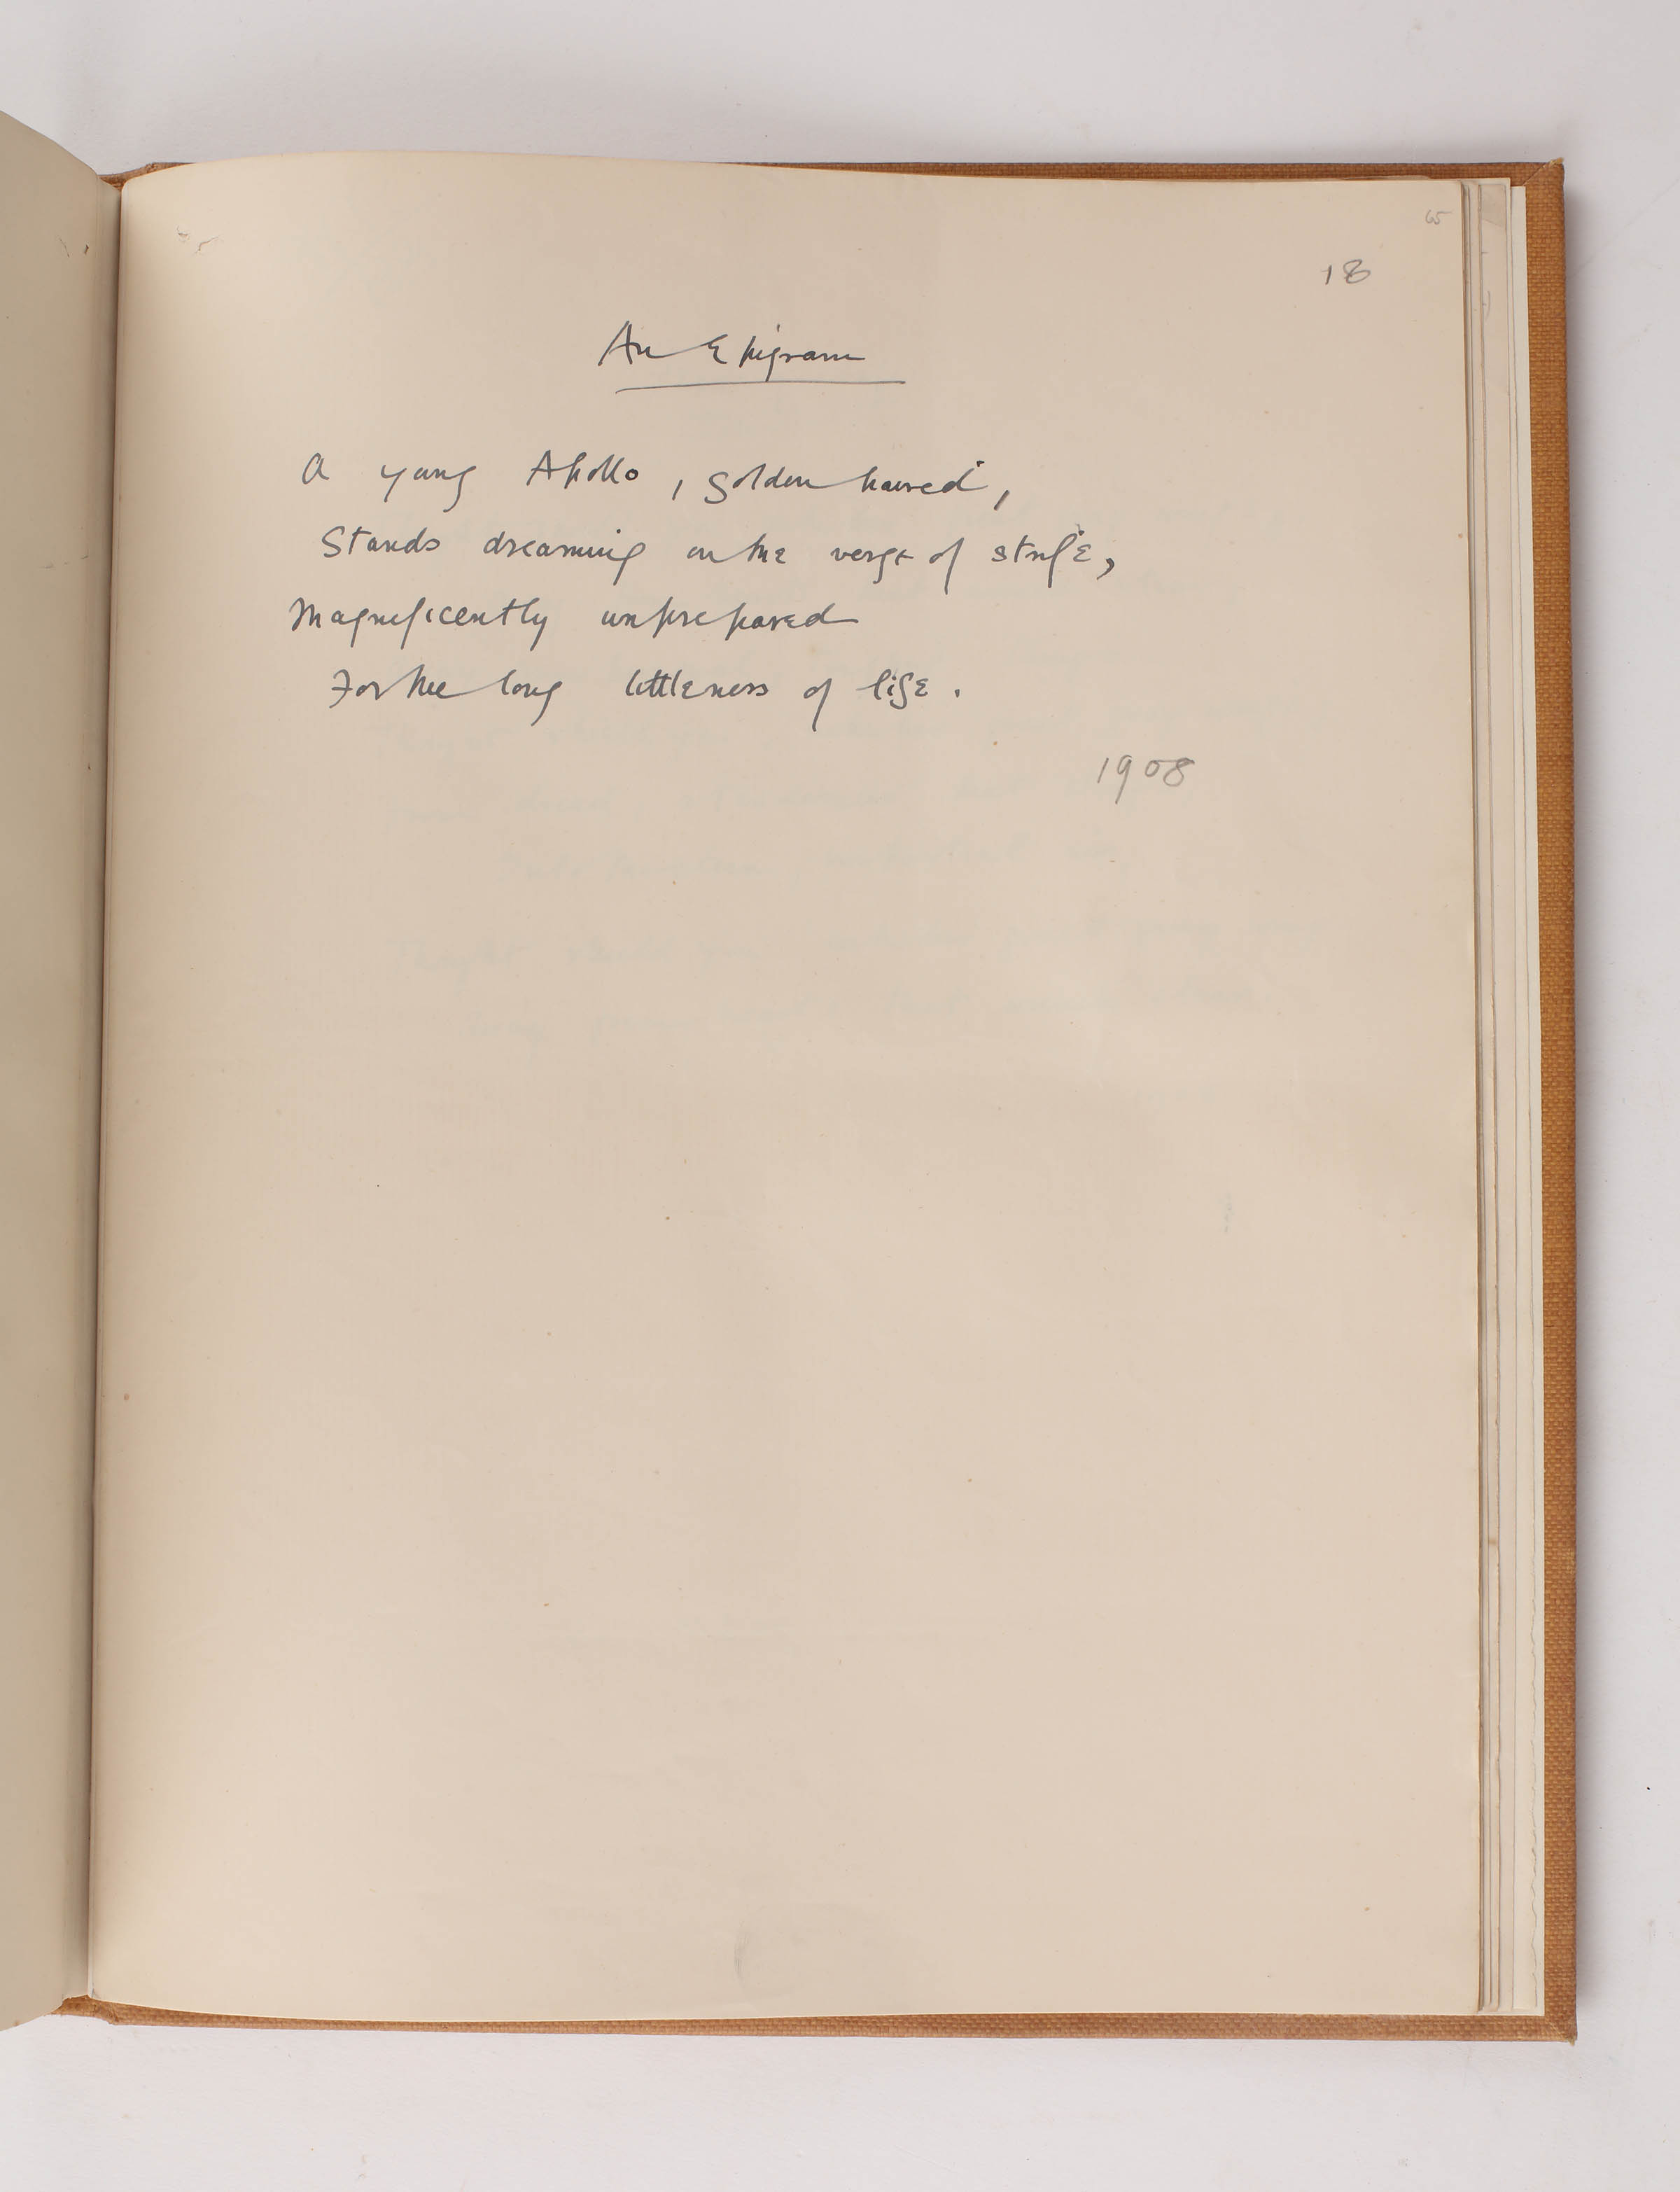 65
18
An Epigram
A young Apollo, golden haired,
Stands dreaming on the verge of strife,
Magnificently unprepared
For the long littleness of life.
1908